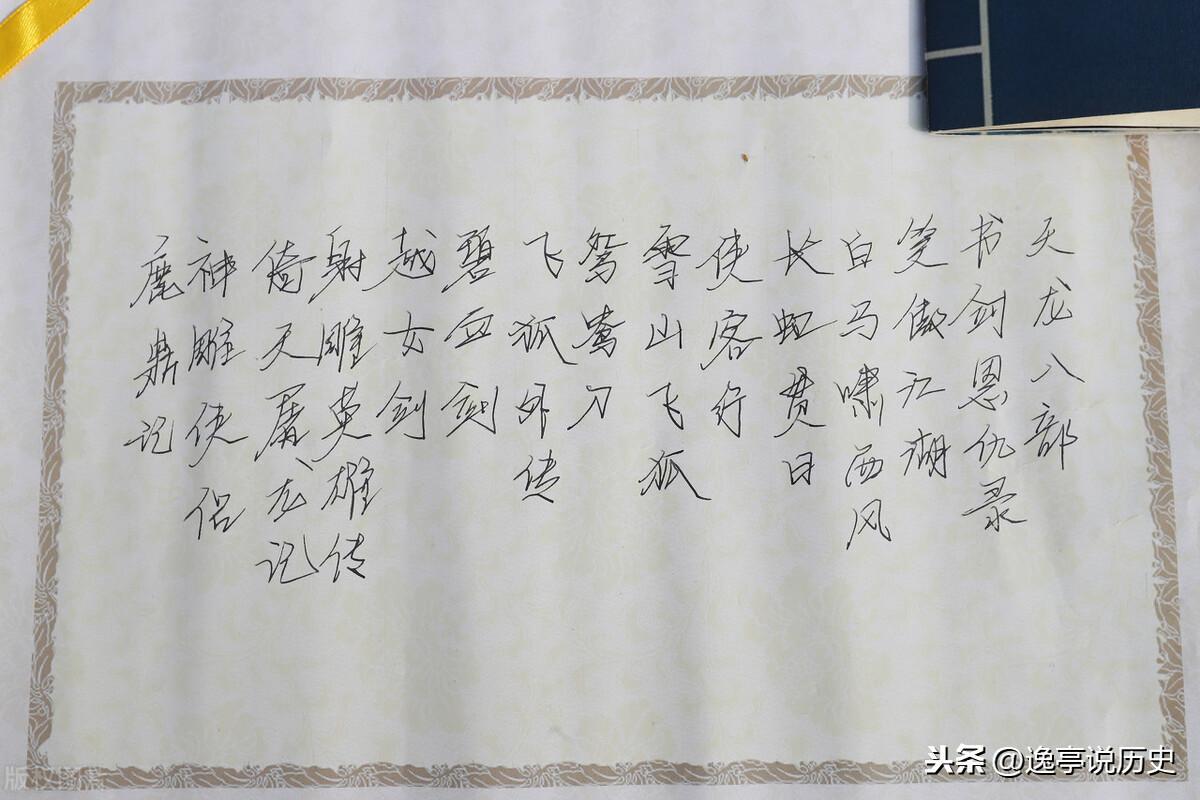 天龙八部
书剑恩仇录
笑傲江湖
白马啸西风
长虹贯日
侠客行
雪山飞狐
鸳鸯刀
飞狐外传
碧血剑
越女剑
射雕英雄传
倚天屠龙记
神雕侠侣
鹿鼎记
头条@逸亭说历史
版权图库